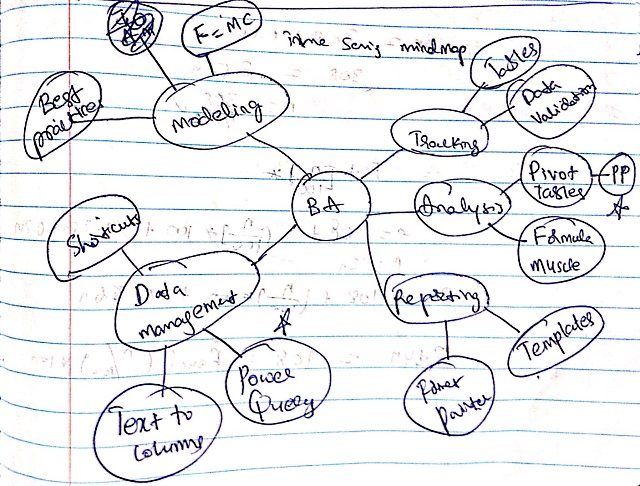 F=MC
mindmap
Tables
Best
practice
modeling
Data
Validation
Tracking
Pivot
tables
PP
BA
Analysis
Shortcuts
Formula
muscle
Data
management
Reporting
Templates
Power
Query
Text to
columns
Format
painter